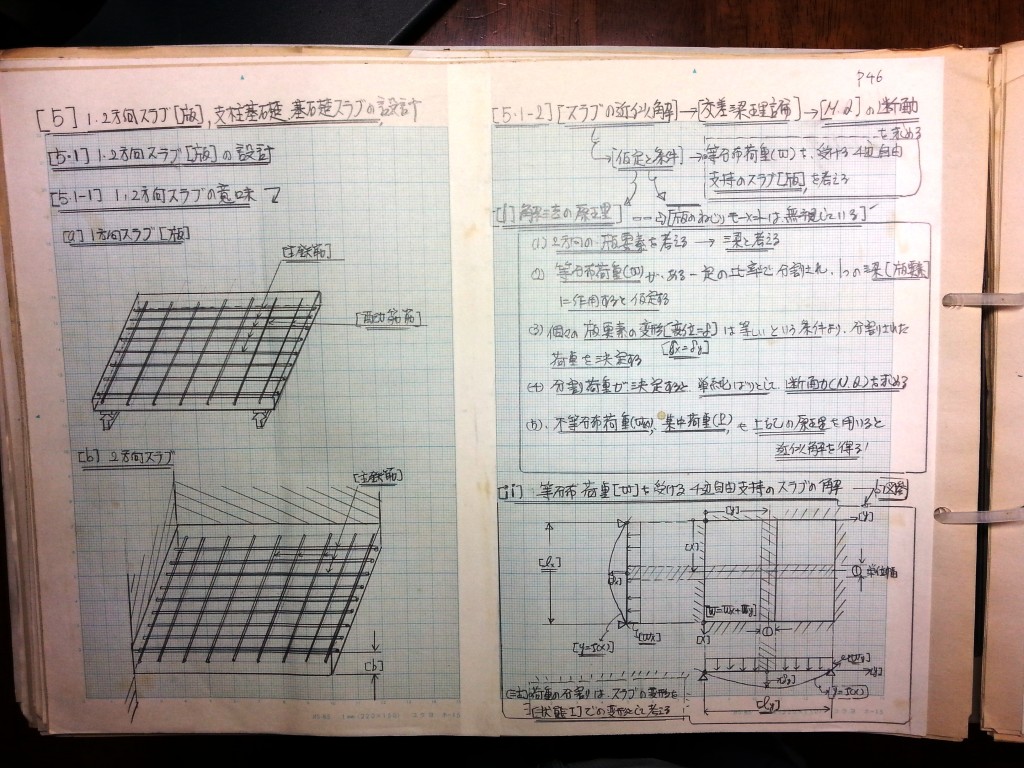 [5] 1.2方向スラブ[版], 支柱基石礎, 基石礎スラブの設計
[5.1] 1.2方向スラブ[版]の設計
[5.1-1] 1,2方向スラブの意味
[a] 1方向スラブ[版]
[主鉄筋]
[配力筋筋]
[b] 2方向スラブ
[主鉄筋]
[b]
P46
[5.1-2] [スラブの近似解]→[交差梁理論]→[M.Q]の断面力
を求める
[仮定と条件]→等分布荷重(w)を、受ける4辺自由
支持のスラブ[版]を考える
[i] 解法の原理] --→[版のねじりモーメントは、無視している]
(1) 2方向の版要素を考える → 梁と考える
(2) 等分布荷重(w)が、ある一定の比率で分割され、1つの梁[版要素]
に作用すると仮定する
(3) 個々の版要素の変形[変位=δ]は等しいという条件より、分割された
荷重を決定する [δx=δy]
(4) 分割荷重が決定すると、単純ばりとして、断面力(M.Q)を求める
(5). 不等分布荷重, 集中荷重(P), も上記の原理を用いると
近似解を得る!
[ii] 等分布荷重[w]を受ける4辺自由支持のスラブの解
[y]
[y]
[x]
[lx]
①
単位幅
[w=wx+wy]
[x]
[wx]
①
[y=f(x)]
[wy]
[y]
[y=f(x)]
[ly]
(注)荷重の分割は、スラブの変形を
[状態I]での変形として考える